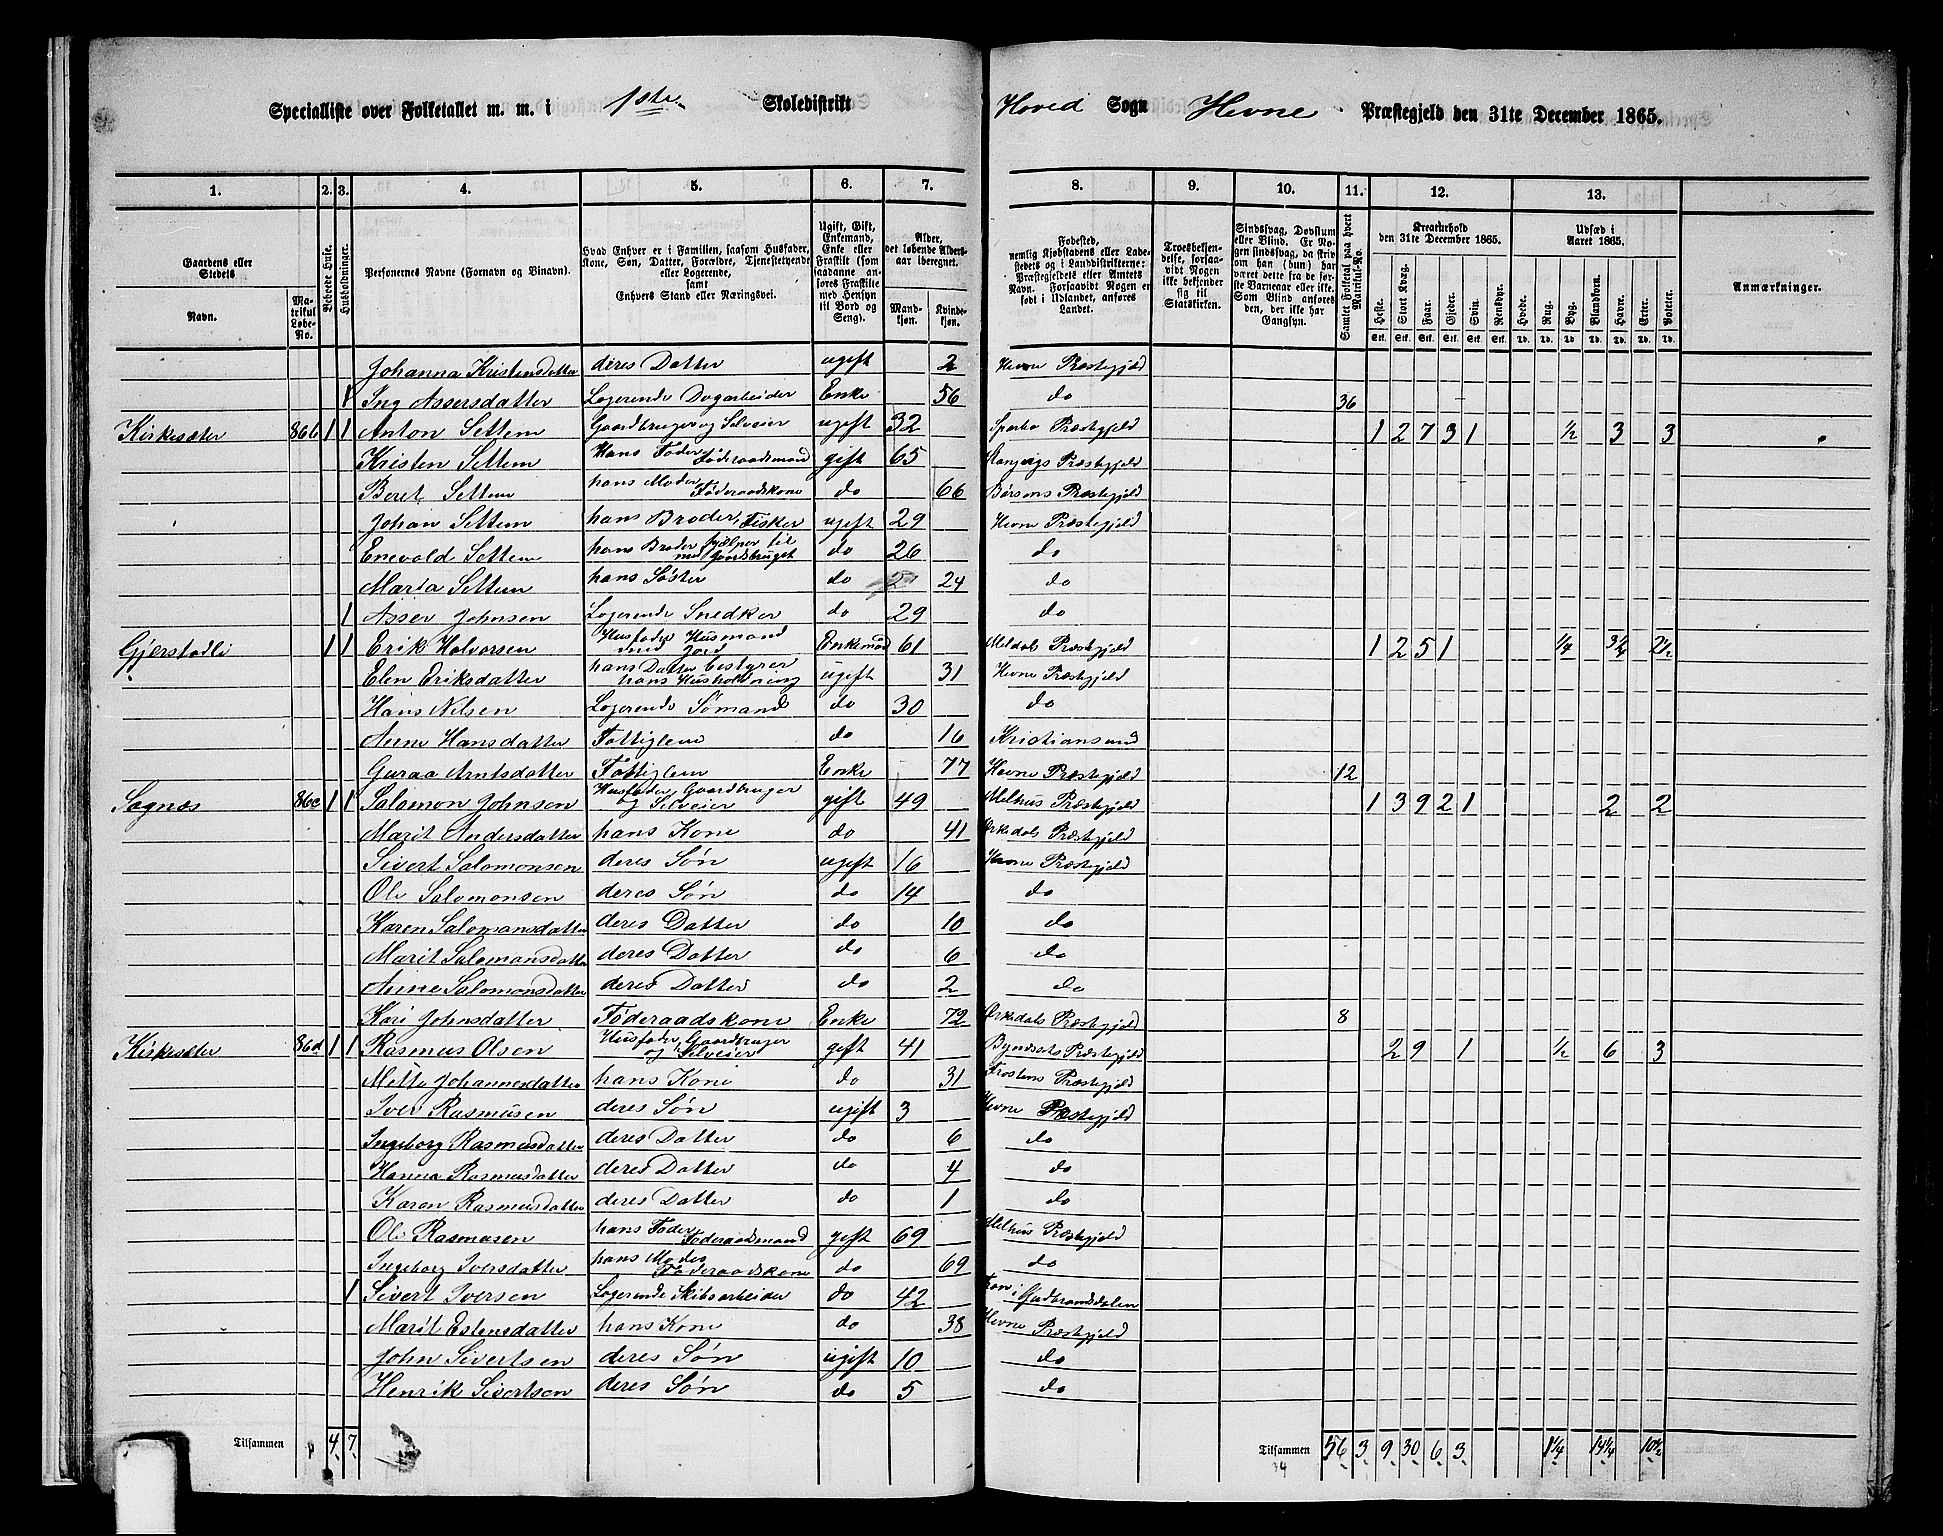 Specialliste over Folketallet m. m. i 1ste Skoledistrikt Hoved Sogn Hevne Præstegjeld den 31te December 1865.
1. 2. 3. 4. 5. 6. 7. 8. 9. 10. 11. 12. 13.
Gaardens eller Stedets Navn. Matrikul Løbe-No. Beboede Huse. Husholdninger. Personernes Navne (Fornavn og Binavn). Hvad Enhver er i Familien, saasom Husfader, Kone, Søn, Datter, Forældre, Tjenestetyende eller Logerende, samt Enhvers Stand eller Næringsvei. Ugift, Gift, Enkemand, Enke eller Fraskilt (som saadanne anføres Fraskilte med Hensyn til Bord og Seng). Alder, det løbende Aldersaar iberegnet. Mandkjøn. Kvindekjøn.
Fødested, nemlig Kjøbstadens eller Ladestedets og i Landdistrikterne: Præstegjeldets eller Amtets Navn. Forsaavidt Nogen er født i Udlandet, anføres Landet. Troesbekjendelse, forsaavidt Nogen ikke bekjender sig til Statskirken. Sindssvag, Døvstum eller Blind. Er Nogen sindssvag, da skrives om han (hun) har været dette fra de første Barneaar eller ikke. Som Blind anføres den, der ikke har Gangsyn. Samlet Folketal paa hvert Matrikul-No. Kreaturhold den 31te December 1865. Heste. Stort Kvæg. Faar. Gjeder. Svin. Rensdyr. Udsæd i Aaret 1865. Hvede. Rug. Byg. Blandkorn. Havre. Erter. Poteter. Anmærkninger.
Johanna Kristensdatter deres Datter ugift 2 Hevne Præstegjeld
1 Ing Assersdatter Logerende Dagarbeider Enke 56 do 36
Kirkesæter 86b 1 1 Anton Settem Gaardbruger og Selveier ugift 32 Sparbo Præstegjeld 1 2 7 3 1 1/2 3 3
Kristen Settem Hans Fader Føderaadsmand gift 65 Præstegjeld
Beret Settem hans Moder Føderaadskone do 66 Børsens Præstegjeld
Johan Settem hans Broder, Fisker ugift 29 Hevne Præstegjeld
Enevold Settem hans Broder hjælper til med Gaardsbruget do 26 do
Maria Settem hans Søster do 24 do
1 Asser Johnsen Logerende Snedker do 29 do
Gjerstadli 1 1 Erik Halvorsen Husfader Husmand med Jord Enkemand 61 Meldals Præstegjeld 1 2 5 1 1/4 3 3/4 2 1/2
Elen Eriksdatter hans Datter bestyrer hans Husholdning ugift 31 Hevne Præstegjeld
Hans Nilsen Logerende Sømand do 30 do
Anne Hansdatter Fattiglem do 16 Kristiansund
Guraa Arntsdatter Fattiglem Enke 77 Hevne Præstegjeld 12
Sagnæs 86c 1 1 Salomon Johnsen Husfader Gaardbruger og Selveier gift 49 Melhus Præstegjeld 1 3 9 2 1 2 2
Marit Andersdatter hans Kone do 41 Orkedals Præstegjeld
Sivert Salomonsen deres Søn ugift 16 Hevne Præstegjeld
Ole Salomonsen deres Søn do 14 do
Karen Salomonsdatter deres Datter do 10 do
Marit Salomonsdatter deres Datter do 6 do
Anne Salomonsdatter deres Datter do 2 do
Kari Johnsdatter Føderaadskone Enke 72 Orkedals Præstegjeld 8
Kirkesæter 86d 1 1 Rasmus Olsen Husfader, Gaardbruger og Selveier gift 41 Bynæssets Præstegjeld 2 9 1 1/2 6 3
Mette Johannesdatter hans Kone do 31 Frostens Præstegjeld
Iver Rasmusen deres Søn ugift 3 Hevne Præstegjeld
Ingeborg Rasmusdatter deres Datter do 6 do
Hanna Rasmusdatter deres Datter do 4 do
Karen Rasmusdatter deres Datter do 1 do
Ole Rasmusen hans Fader Føderaadsmand gift 69 Melhus Præstegjeld
Ingeborg Iversdatter hans Moder Føderaadskone do 69 do
1 Sivert Iversen Logerende Skibsarbeider do 42 Fron i Gudbrandsdalen
Marit Estensdatter hans Kone do 38 Hevne Præstegjeld
John Sivertsen deres Søn ugift 10 do
Henrik Sivertsen deres Søn do 5 do
Tilsammen 4 7 Tilsammen 56 3 9 30 6 3 1 1/4 14 3/4 10 1/2
34